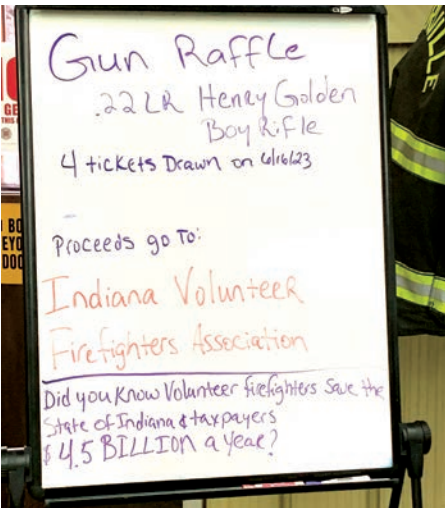 Gun Raffle
.22LR Henry Golden
Boy Rifle
4 tickets Drawn on 6/16/23
Proceeds go To:
Indiana Volunteer
Firefighters Association
Did you Know Volunteer firefighters Save the
State of Indiana & taxpayers
$ 4.5 BILLION a year?